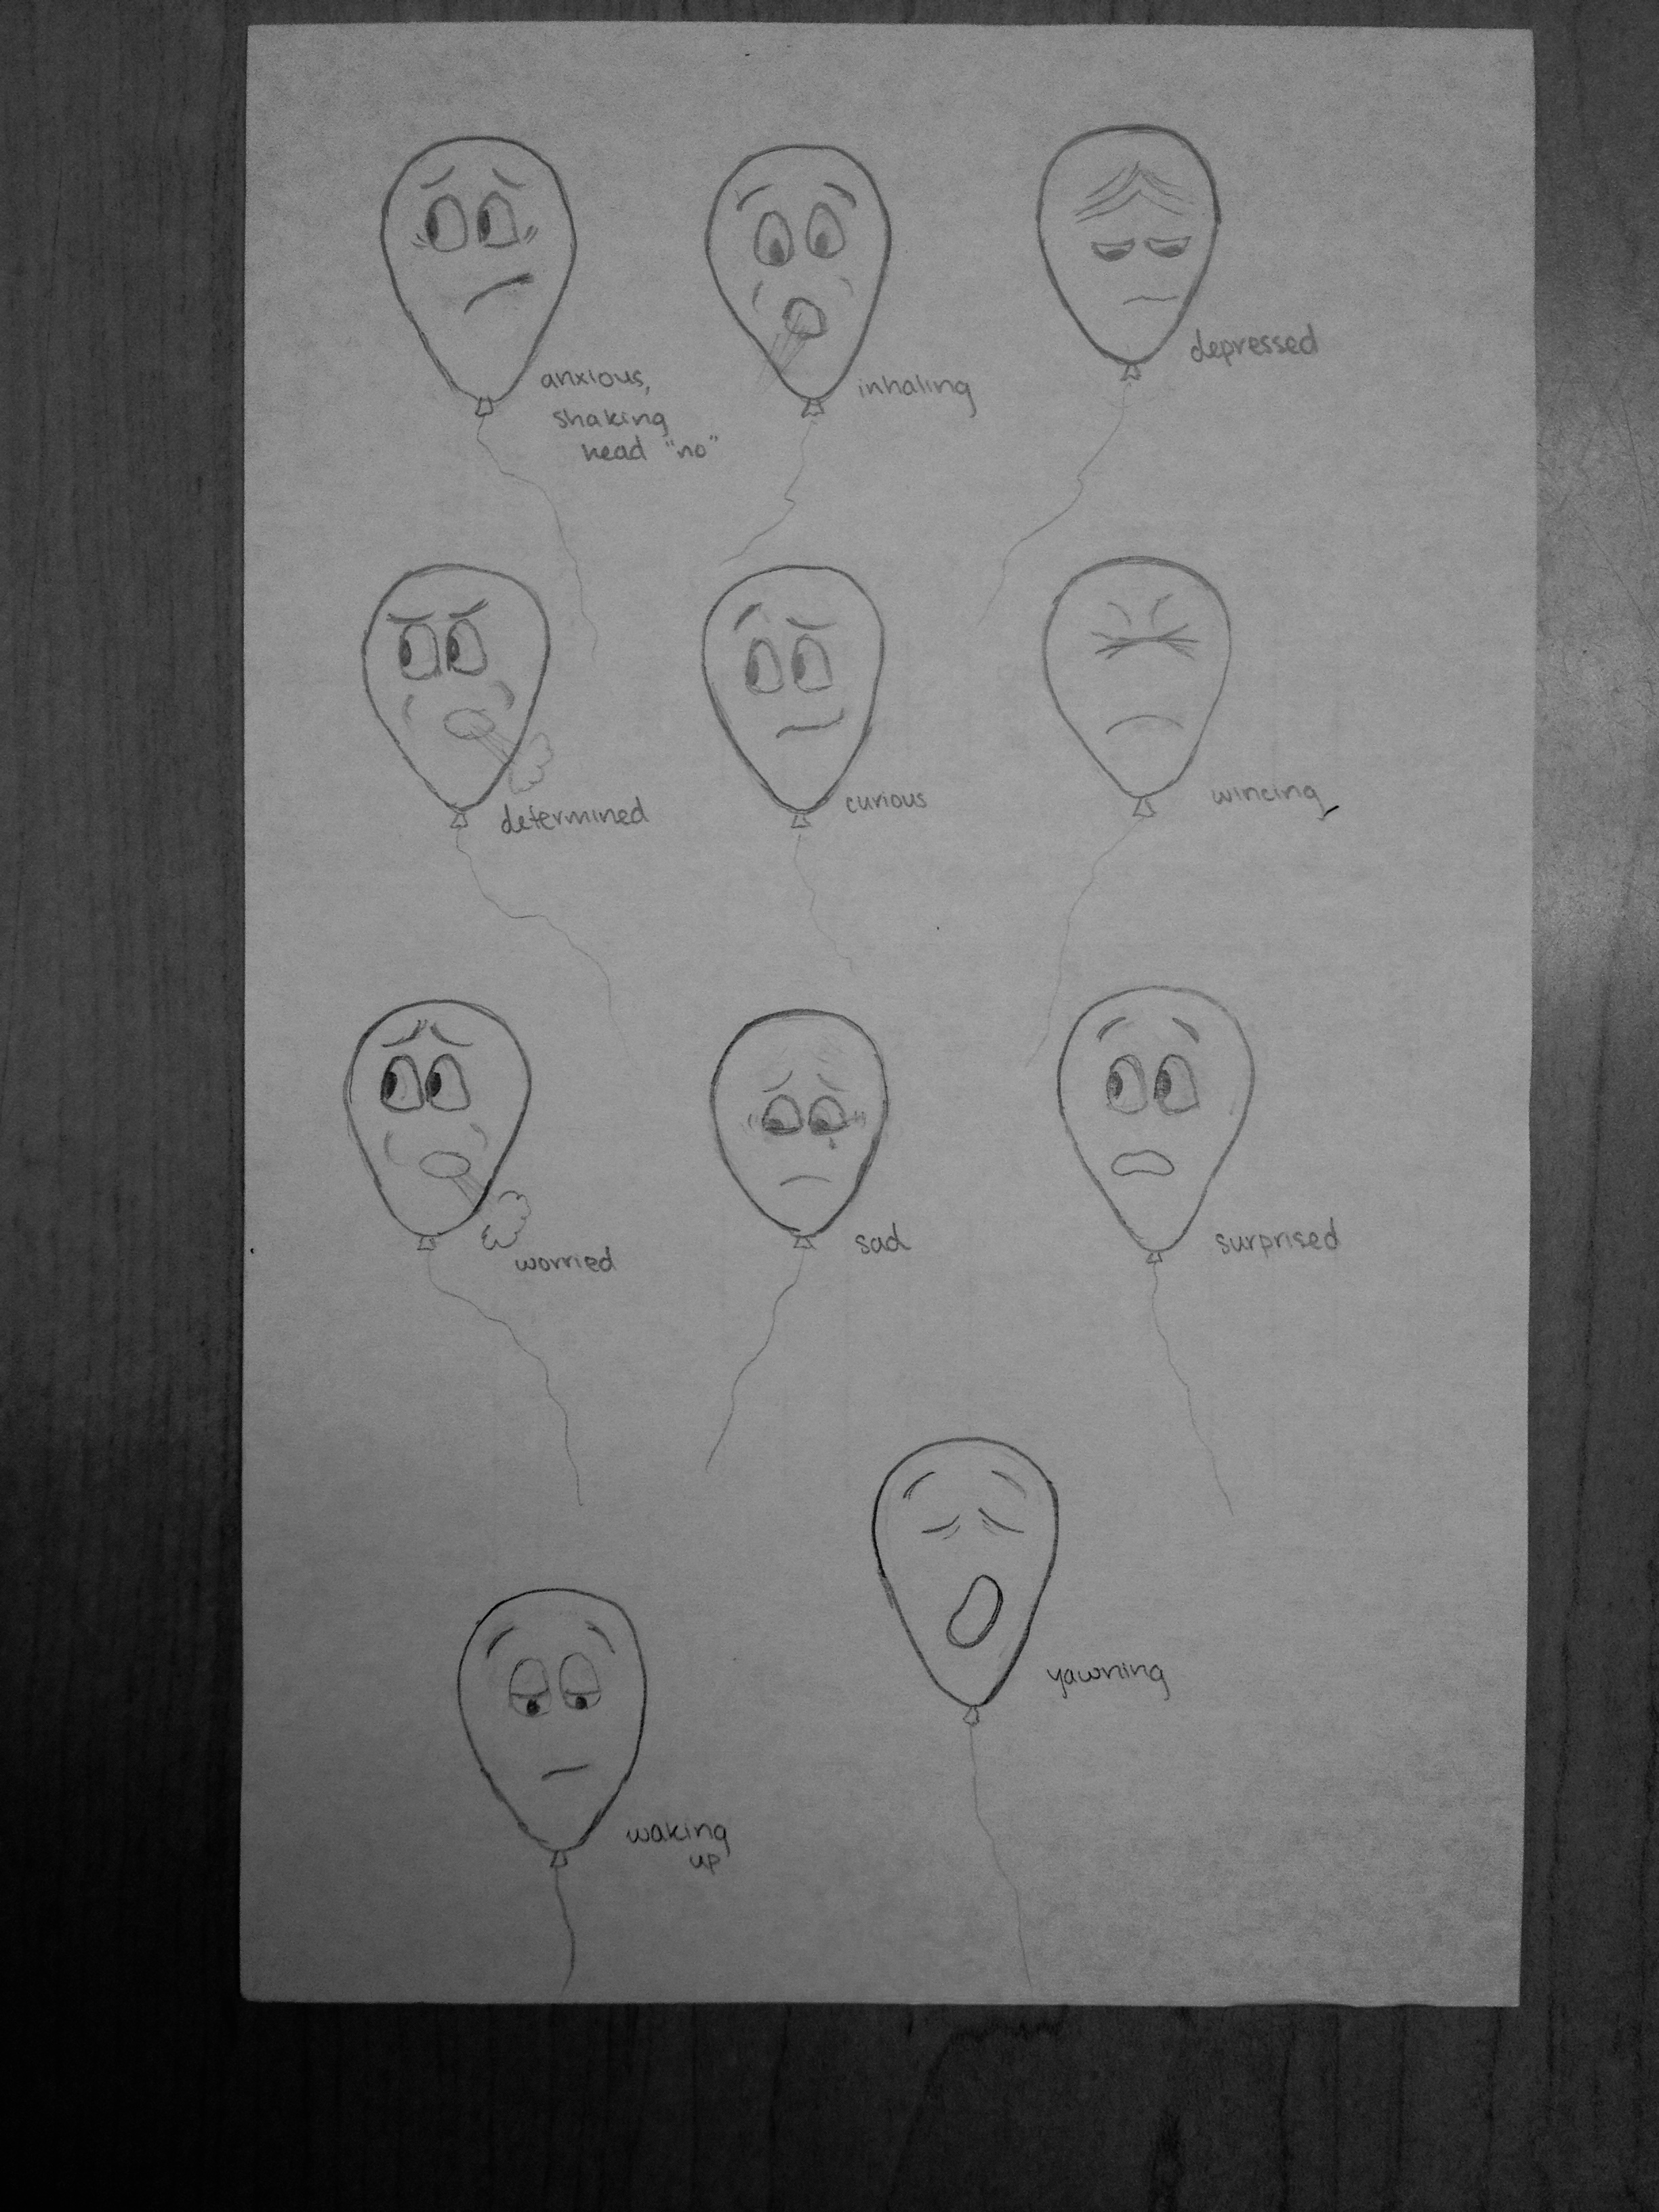 anxious,
shaking
head "no"
inhaling
depressed
determined
curious
wincing
worried
sad
surprised
yawning
waking
up